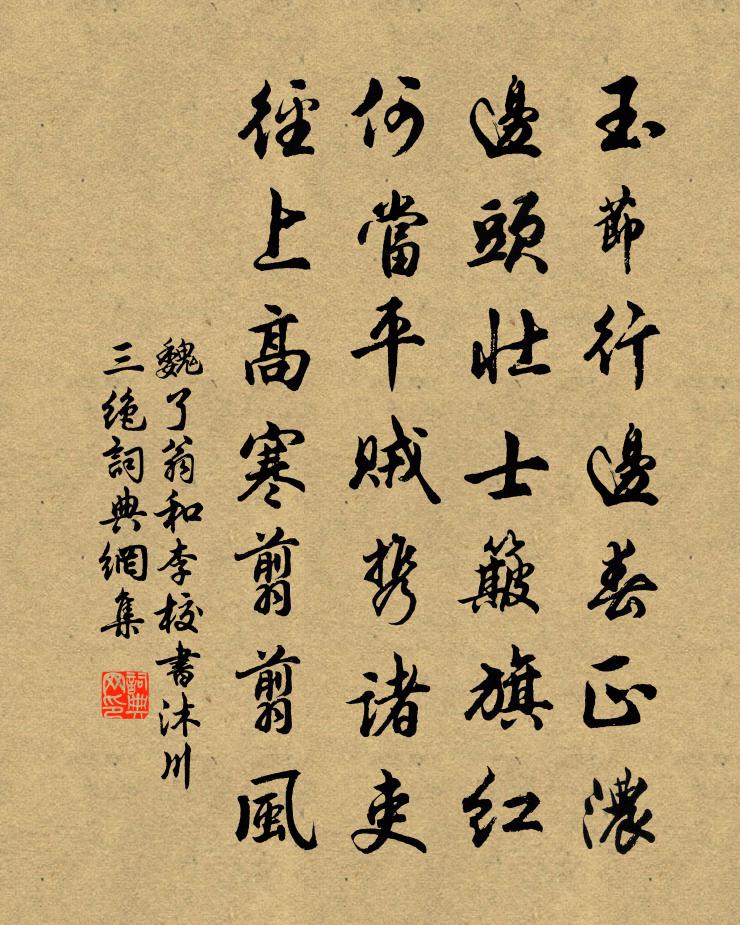 玉節行邊春正濃
邊頭壯士簸旗紅
何當平賊攜諸吏
徑上高寒翦翦風
魏了翁和李校書沐川
三絕詞典網集
詞典
网印